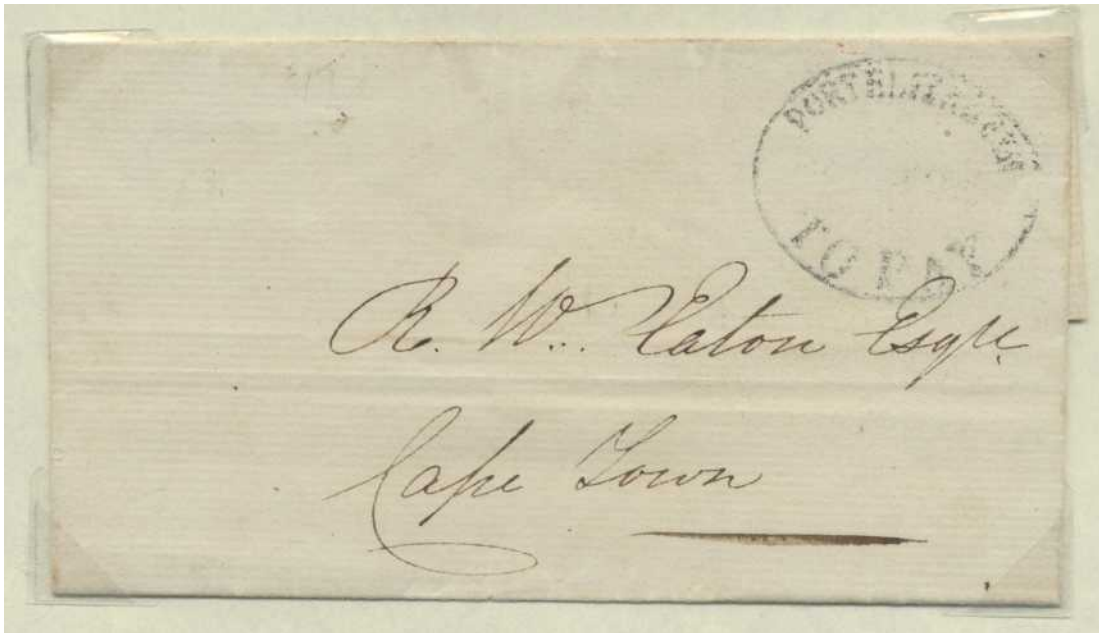 PORT ELIZABETH
TO PAY
R. W. Eaton Esqre.
Cape Town